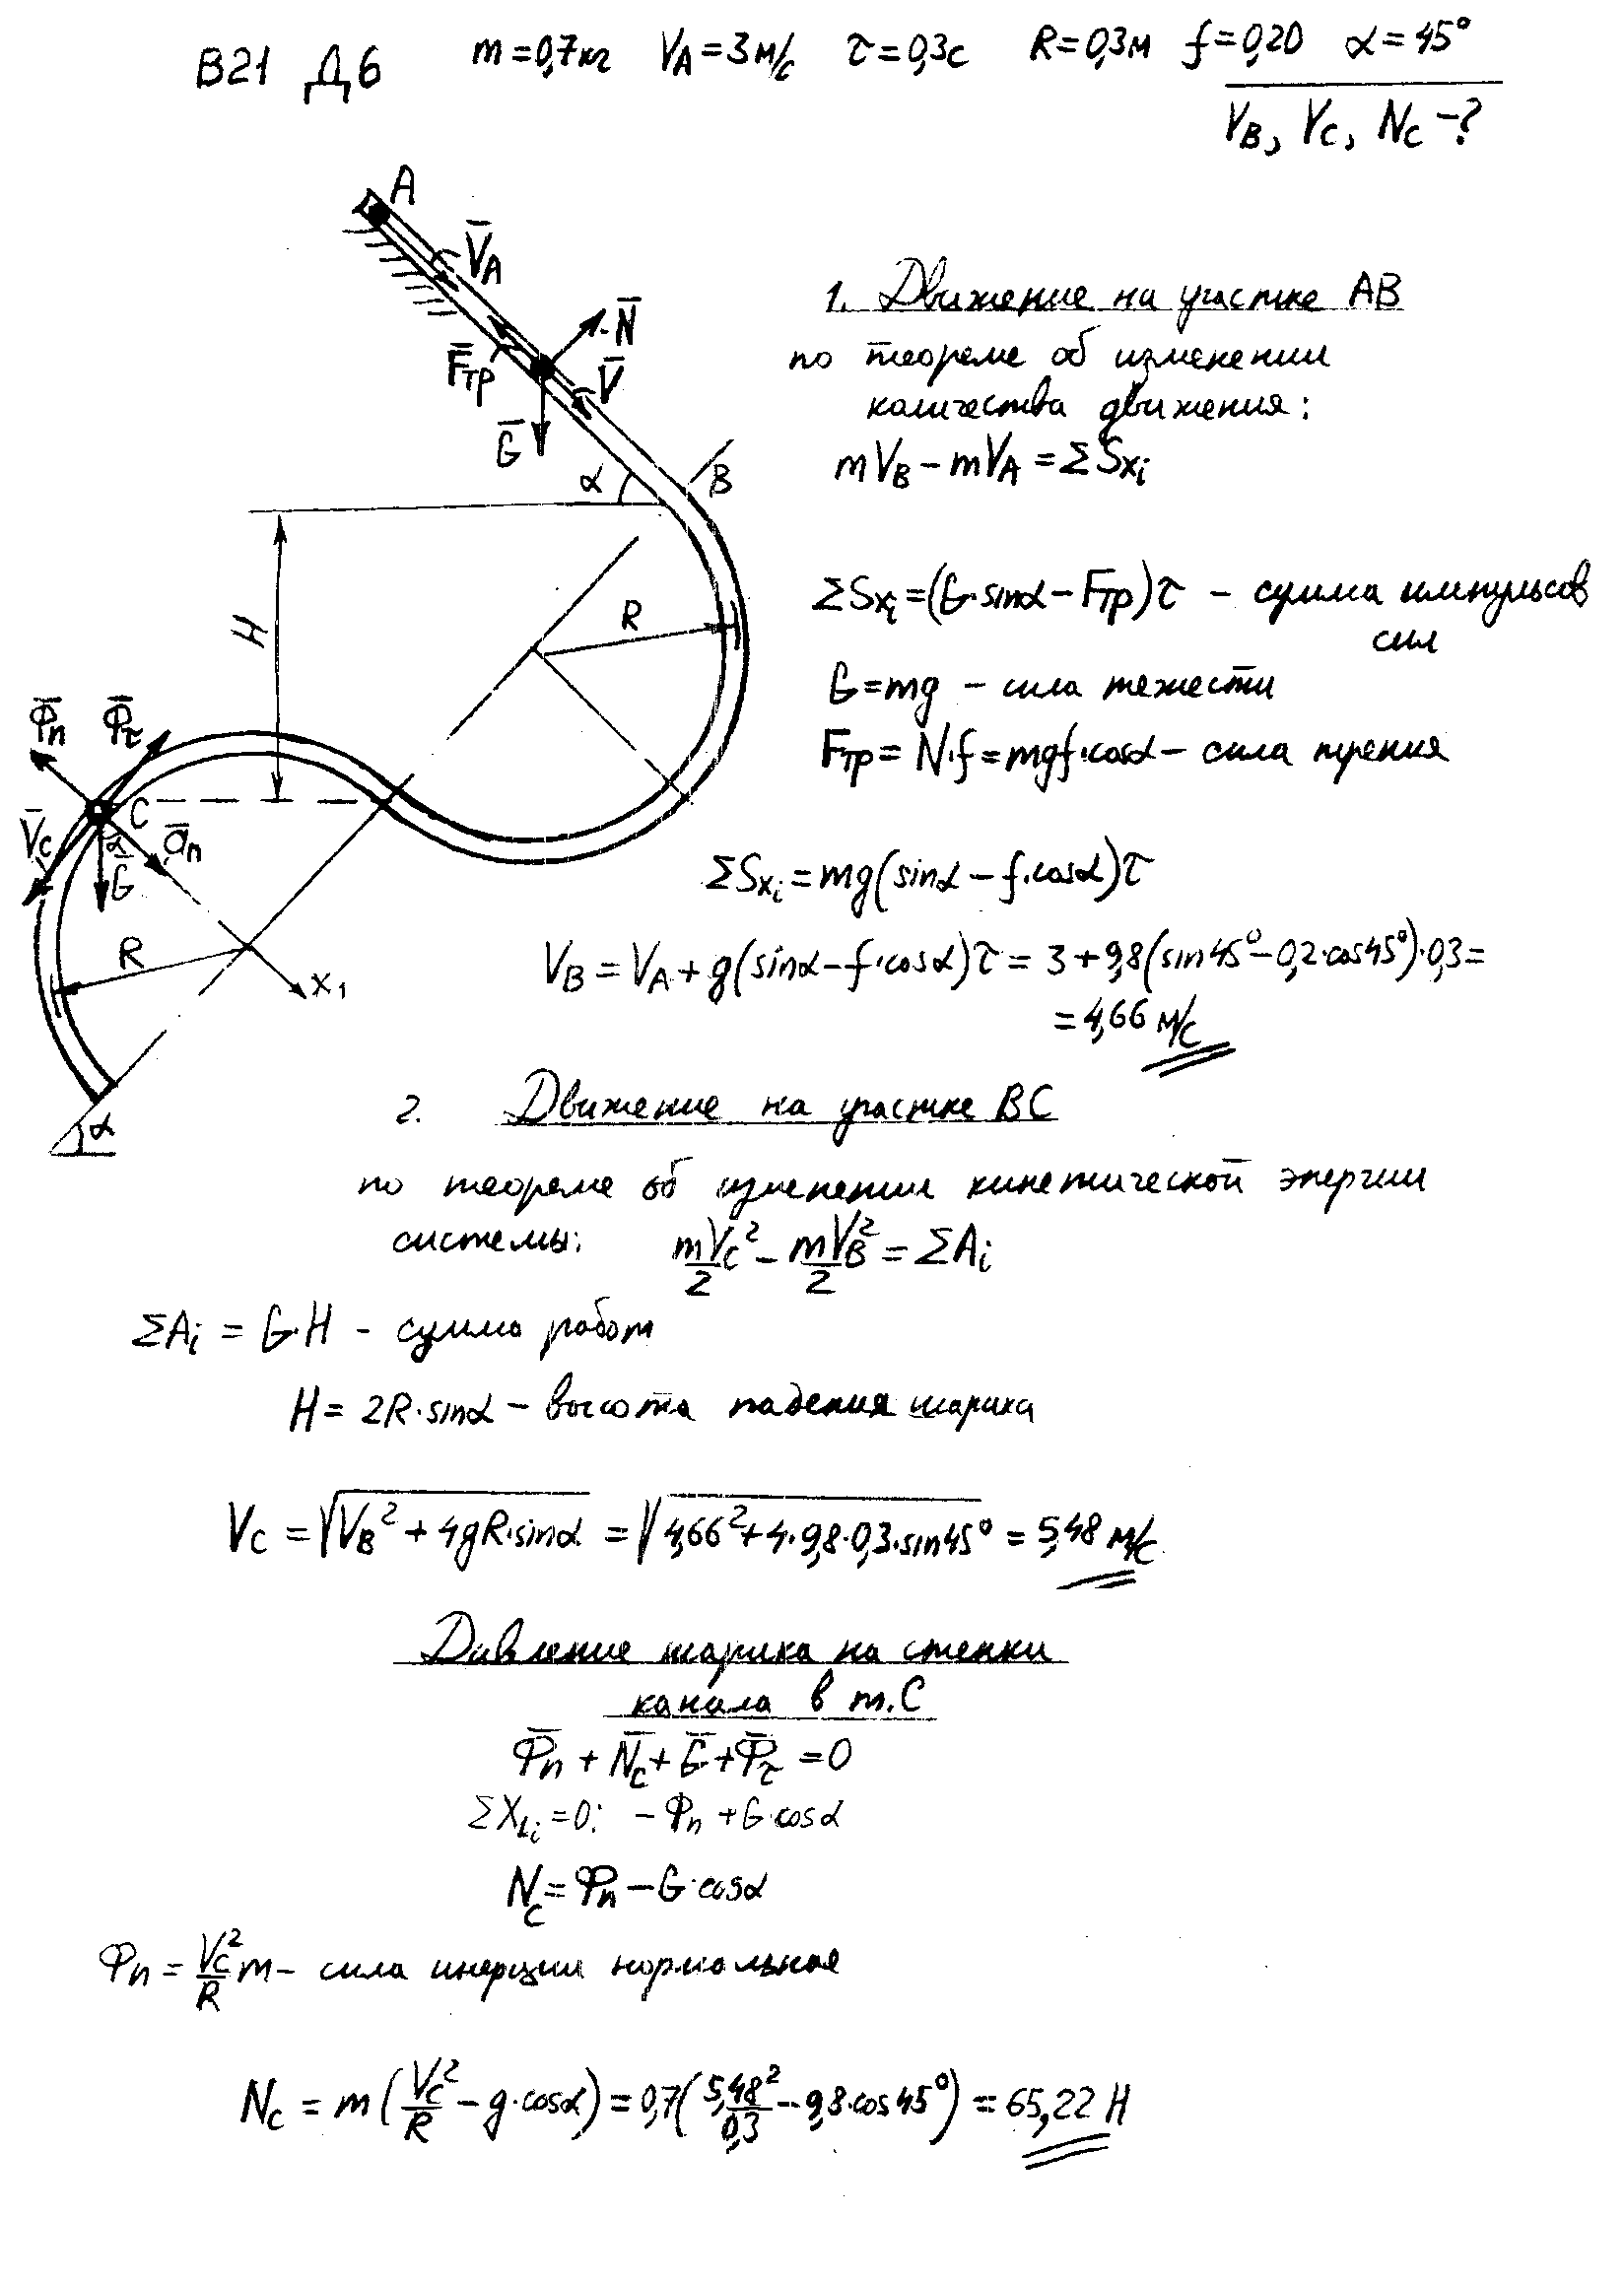 В21 Д6 m=0,7кг V_A=3м/с τ=0,3с R=0,3м f=0,20 α=45°
V_B, V_C, N_C -?
A
V̄_A
N̄
F̄тр
V̄
Ḡ
α
B
H
R
Φ̄n Φ̄τ
V̄c
C
α
ān
Ḡ
R
x₁
α
1. Движение на участке АВ
по теореме об изменении
количества движения:
mV_B - mV_A = ΣSx_i
ΣSx_i = (G·sinα - Fтр)τ - сумма импульсов
сил
G = mg - сила тяжести
Fтр = N·f = mgf·cosα - сила трения
ΣSx_i = mg(sinα - f·cosα)τ
V_B = V_A + g(sinα - f·cosα)τ = 3 + 9,8(sin45° - 0,2·cos45°)·0,3 =
= 4,66 м/с
2. Движение на участке ВС
по теореме об изменении кинетической энергии
системы: mVc²/2 - mV_B²/2 = ΣA_i
ΣA_i = G·H - сумма работ
H = 2R·sinα - высота падения шарика
Vc = √(V_B² + 4gR·sinα) = √(4,66² + 4·9,8·0,3·sin45°) = 5,48 м/с
Давление шарика на стенки
канала в т.С
Φ̄n + N̄c + Ḡ + Φ̄τ = 0
ΣX₁i = 0: -Φn + G·cosα
Nc = Φn - G·cosα
Φn = Vc²/R m - сила инерции нормальная
Nc = m(Vc²/R - g·cosα) = 0,7(5,48²/0,3 - 9,8·cos45°) = 65,22 Н